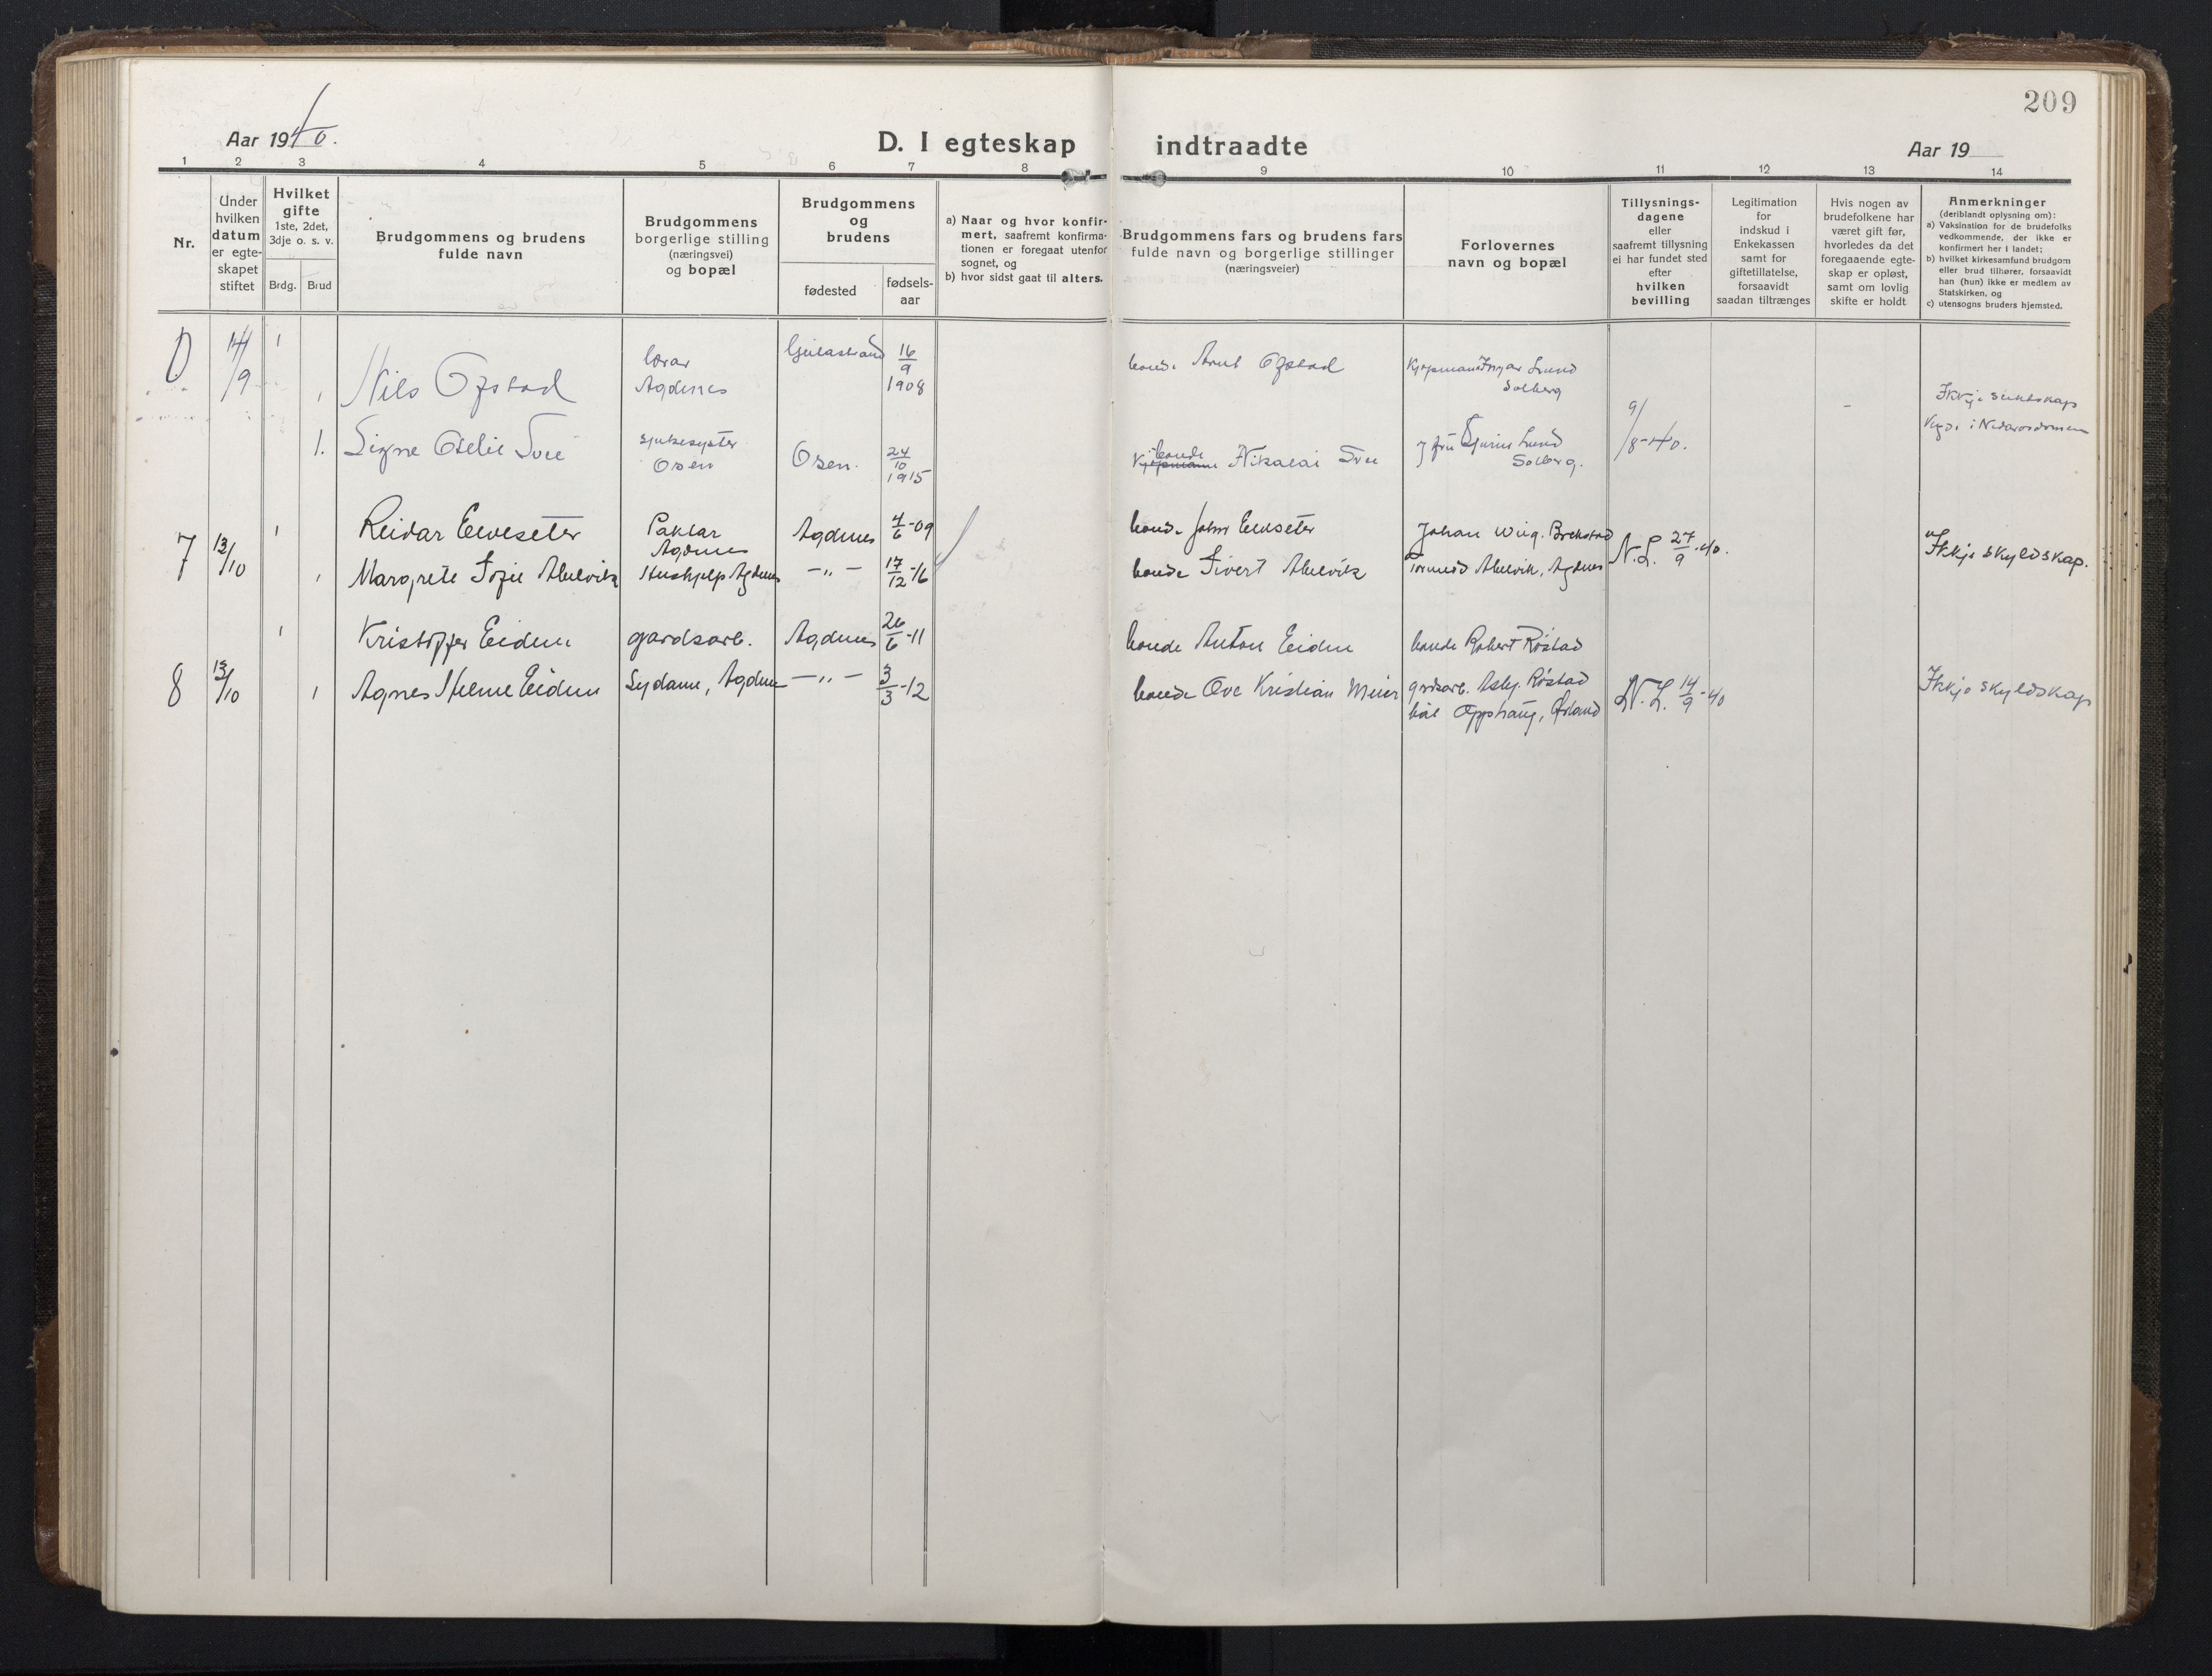 209
Aar 1940.
D. I egteskap indtraadte
Aar 19
1 2 3 4 5 6 7 8 9 10 11 12 13 14
Nr.
Under hvilken datum er egteskapet stiftet
Hvilket gifte
1ste, 2det, 3dje o. s. v.
Brdg. Brud
Brudgommens og brudens fulde navn
Brudgommens borgerlige stilling (næringsvei) og bopæl
Brudgommens og brudens
fødested
fødsels-aar
a) Naar og hvor konfir-
mert, saafremt konfirma-
tionen er foregaat utenfor
sognet, og
b) hvor sidst gaat til alters.
Brudgommens fars og brudens fars
fulde navn og borgerlige stillinger
(næringsveier)
Forlovernes
navn og bopæl
Tillysnings-
dagene
eller
saafremt tillysning
ei har fundet sted
efter
hvilken
bevilling
Legitimation
for
indskud i
Enkekassen
samt for
giftetillatelse,
forsaavidt
saadan tiltrænges
Hvis nogen av
brudefolkene har
været gift før,
hvorledes da det
foregaaende egte-
skap er opløst,
samt om lovlig
skifte er holdt
Anmerkninger
(deriblandt oplysning om):
a) Vaksination for de brudefolks
vedkommende, der ikke er
konfirmert her i landet;
b) hvilket kirkesamfund brudgom
eller brud tilhører, forsaavidt
han (hun) ikke er medlem av
Statskirken, og
c) utensogns bruders hjemsted.
0 14/9 1 Nils Ofstad lærar Agdenes 16/9 1908 bonde Arnt Ofstad Kjøpmann Ingar Lund Solberg
1. Signe Oselie sjukesyster Osen Osen. 24/10 1915 bonde Kjøpmann Nikolai Lund Solberg. 9/8-40. Ikkje i Nidarosdomen
7 13/10 1 Reidar Elveseter Paktar Agdenes Agdenes 4/6-09 bonde John Elveseter Johan Wiig. Brekstad N.L. 27/9-40. Ikkje skyldskap.
1 Margrete Sofie Alselvik Hushjelp Agdenes -„- 17/12-16 bonde Sivert Agdenes
1 Kristoffer Eidem gardsarb. Agdenes 26/6-11 bonde Anton Eidem bonde Robert Røstad
8 13/10 1 Agnes Helene Eidem Sydame, Agdenes -„- 3/3-12 bonde Ove Kristian Meier gardsarb. Asbj. Røstad N.L. 14/9-40 Ikkje skyldskap
Opphaug, Ørland